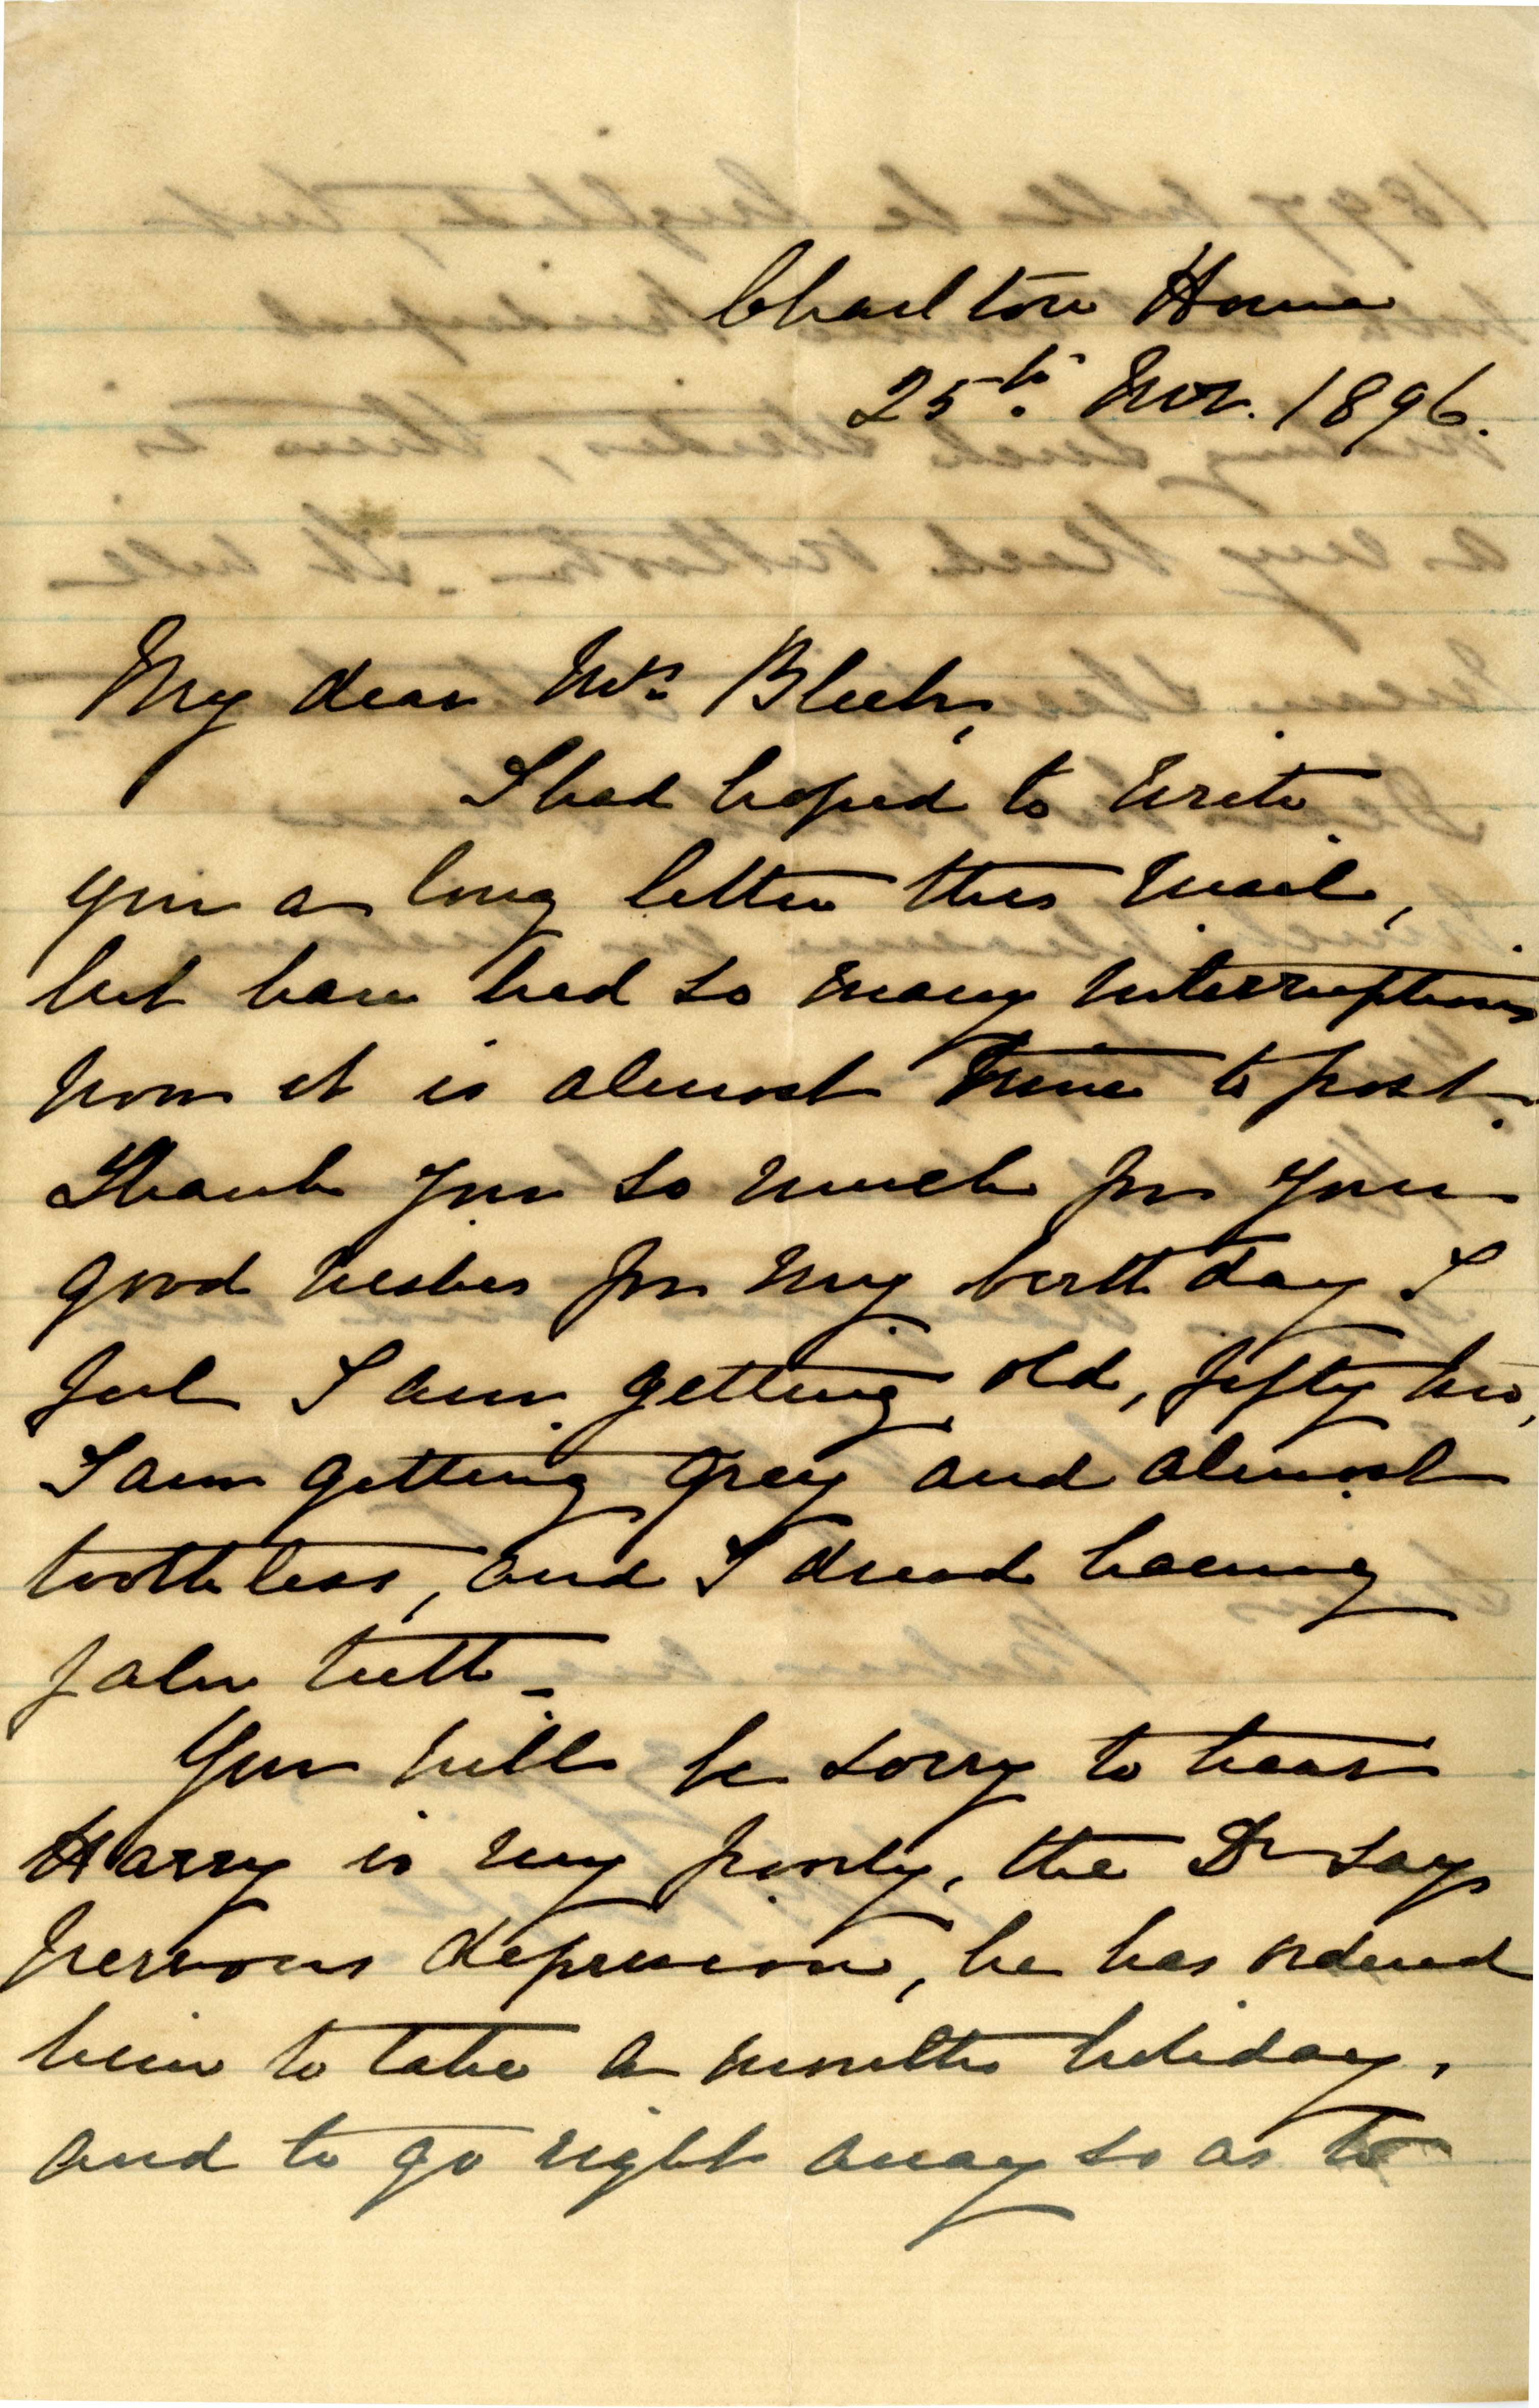 Charlton House
25th Nov. 1896.
My dear Mrs Bleek,
I had hoped to write
you a long letter this mail,
but have had so many interruptions
now it is almost time to post.
Thank you so much for your
good wishes for my birthday I
feel I am getting old, fifty two,
I am getting grey and almost
toothless, and I dread having
false teeth -
You will be sorry to hear
Harry is very poorly, the Dr says
nervous depression, he has ordered
him to take a months holiday,
and to go right away so as to